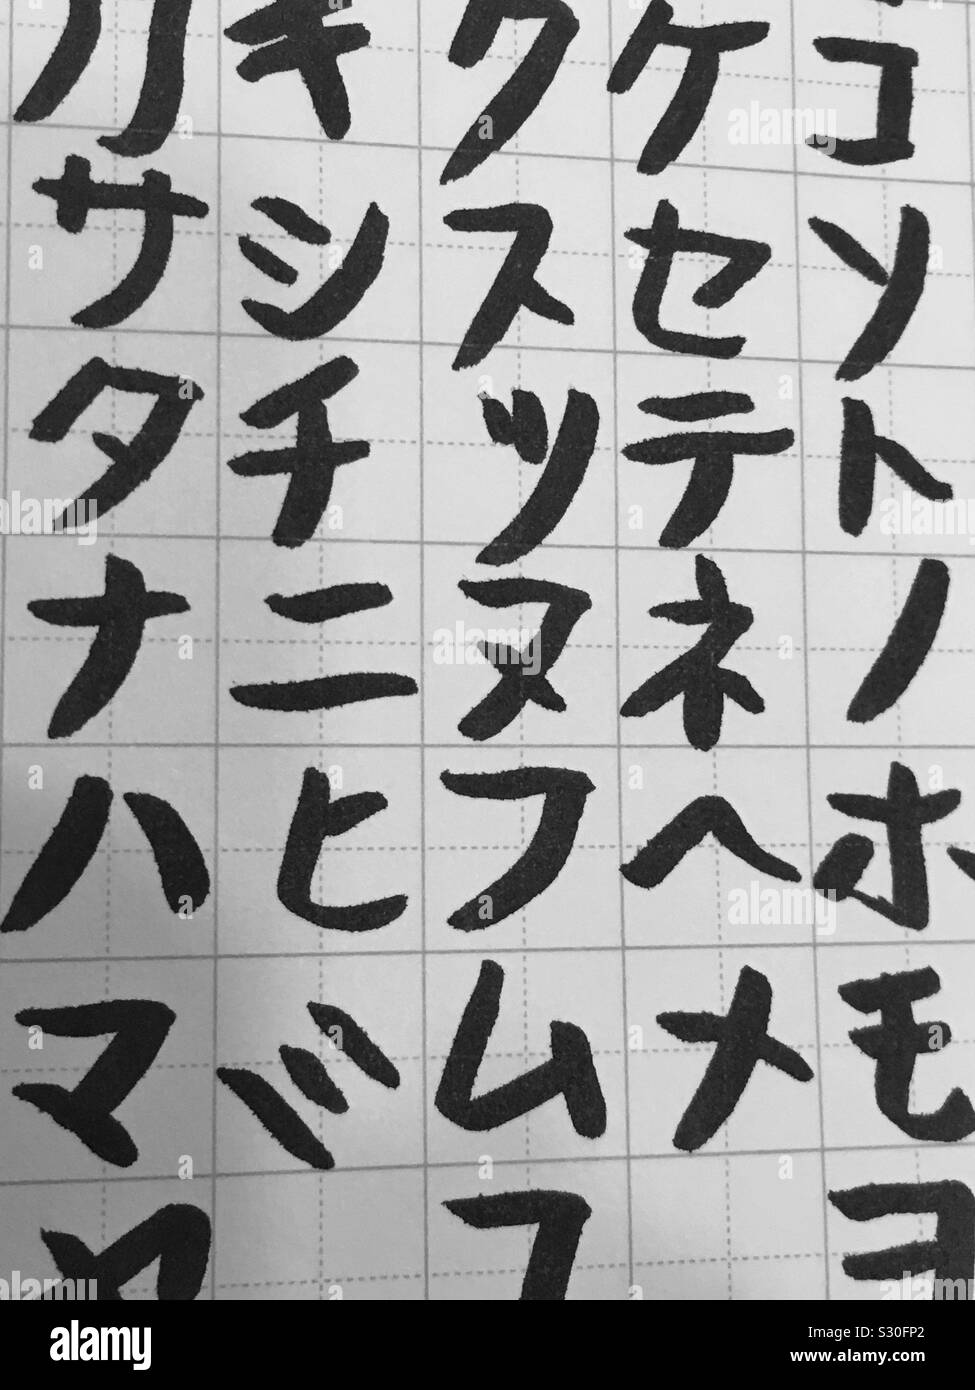 カキクケコ
サシスセソ
タチツテト
ナニヌネノ
ハヒフヘホ
マミムメモ
ヤユヨ
alamy
Image ID: S30FP2
www.alamy.com